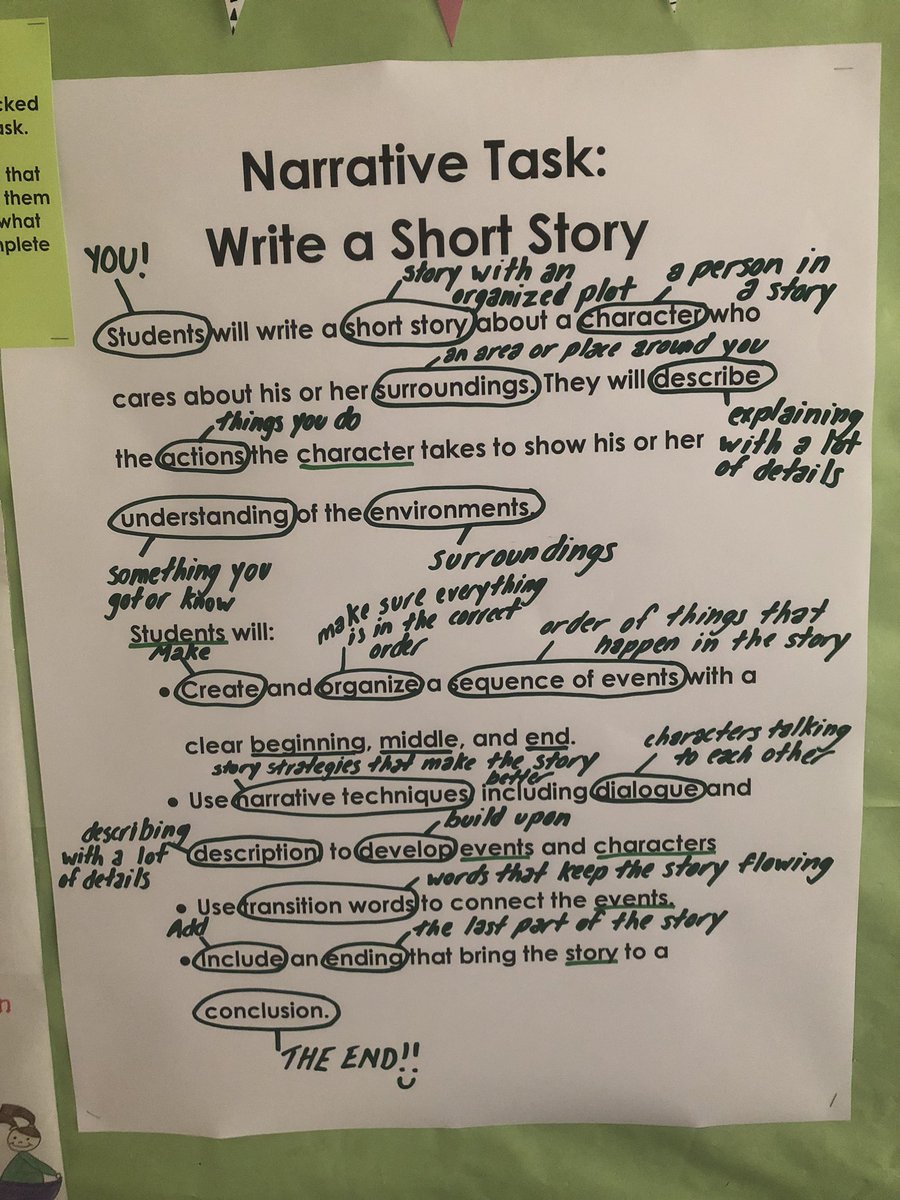 cked
ask.
that
them
what
mplete
Narrative Task:
Write a Short Story
YOU!
story with an
organized plot
a person in
a story
Students will write a short story about a character who
an area or place around you
cares about his or her surroundings. They will describe
things you do
explaining
with a lot
of details
the actions the character takes to show his or her
understanding of the environments.
something you
got or know
surroundings
make sure everything
is in the correct
order
order of things that
happen in the story
Students will:
Make
• Create and organize a sequence of events with a
clear beginning, middle, and end.
characters talking
to each other
story strategies that make the story
better
• Use narrative techniques including dialogue and
build upon
describing
with a lot
of details
description to develop events and characters
words that keep the story flowing
• Use transition words to connect the events.
Add
the last part of the story
• Include an ending that bring the story to a
conclusion.
THE END!!